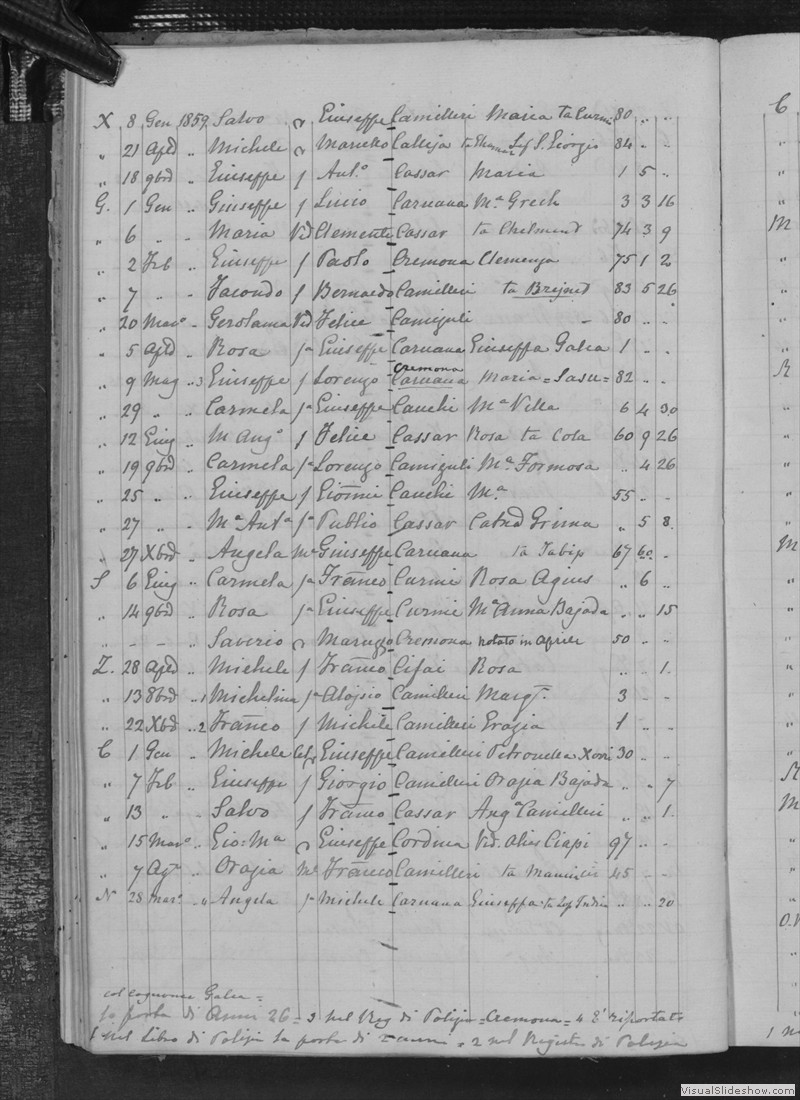 X 8 Gen 1859 Salvo Giuseppe Camilleri Maria ta Curmi 80 „ „
„ 21 Apl̃e „ Michele Marietto Calleja S. Giorgio 84 „ -
„ 18 9bre „ Giuseppe f Ant.o Cassar Maria 1 5 „
G. 1 Gen „ Giuseppe f Livio Caruana Ma Grech 3 3 16
„ 6 „ „ Maria Vid Clemente Cassar ta 74 3 9
„ 2 Feb „ Giuseppe f Paolo Cremona Clemenza 75 1 2
„ 7 „ „ Facondo f Bernardo Camilleri ta 83 5 26
„ 20 Marzo „ Gerolama Vid Felice Camizuli - 80 „ „
„ 5 Aple „ Rosa fa Giuseppe Caruana Giuseppa Galea 1 „ „
Cremona
„ 9 Mag „ 3 Giuseppe f Lorenzo Caruana Maria = = 82 „ „
„ 29 „ „ Carmela fa Giuseppe Cauchi Ma Vella 6 4 30
„ 12 Giug „ M Ango f Felice Cassar Rosa ta Cola 60 9 26
„ 19 9bre „ Carmela fa Lorenzo Camizuli Ma Formosa „ 4 26
„ 25 „ „ Giuseppe f Gionni Cauchi Ma 55 „ „
„ 27 „ „ Ma Anta fa Publio Cassar Catna Grima „ 5 8
„ 27 Xbre „ Angela Me Giuseppe Caruana ta Tabip 67 „
S 6 Giug „ Carmela fa Franco Curmi Rosa Agius „ 6 „
„ 14 9bre „ Rosa fa Giuseppe Curmi Ma Anna Bajada „ „ 15
„ - - „ Saverio Maruzzo Cremona notato in Aprile 50 „ „
Z. 28 Aple „ Michele f Franco Cifai Rosa „ „ 1
„ 13 8bre „ 1 Michelina fa Aloisio Camilleri Margta 3 - -
„ 22 Xbre „ 2 Franco f Michele Camilleri Grazia 1 - -
C 1 Gen „ Michele Giuseppe Camilleri Petronella 30 - -
„ 7 Feb „ Giuseppe f Giorgio Camilleri Orazia Bajada „ „ 7
„ 13 „ „ Salvo f Franco Cassar Anga Camilleri „ „ 1
„ 15 Marzo „ Gio: Ma Giuseppe Cordina Vid. Alies Ciapi 97 „ -
„ 7 Agto „ Orazia Me Franco Camilleri ta 45 - -
N 28 Marzo „ 4 Angela fa Michele Caruana Giuseppa ta „ „ 20
col cognome Galea =
la porta di Anni 26 = 3 nel Reg di Polizia = Cremona = 4 E' riportato
1 nel Libro di Polizia la porta di 2 anni = 2 nel Registro di Polizia
VisualSlideshow.com